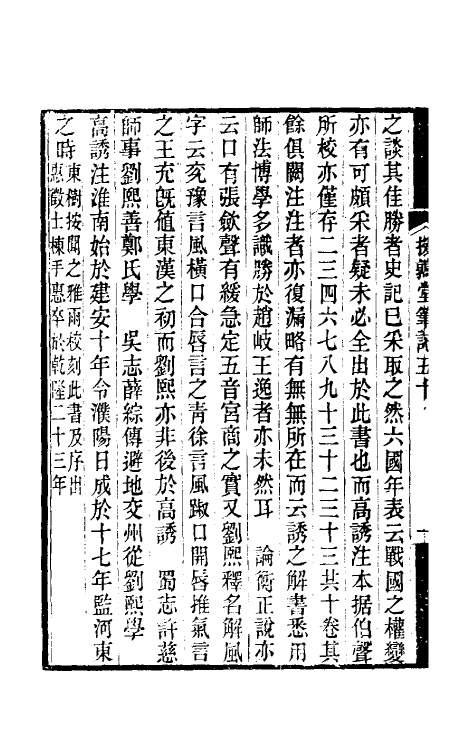 援鶉堂筆記五十
之談其佳勝者史記已采取之然六國年表云戰國之權變
亦有可頗采者疑未必全出於此書也而高誘注本据伯聲
所校亦僅存二三四六七八九十三十二三十三其十卷其
餘俱闕注注者亦復漏略有無無所在而云誘之解書悉用
師法博學多識勝於趙岐王逸者亦未然耳　論衡正說亦
云口有張歙聲有緩急定五音宮商之實又劉熙釋名解風
字云兖豫言風橫口合脣言之青徐言風踧口開脣推氣言
之王充旣値東漢之初而劉熙亦非後於高誘　蜀志許慈
師事劉熙善鄭氏學　吳志薛綜傳避地交州從劉熙學
高誘注淮南始於建安十年令濮陽日成於十七年監河東
之時東樹按聞之雅雨校刻此書及序出
惠徵士棟手惠卒於乾隆二十三年